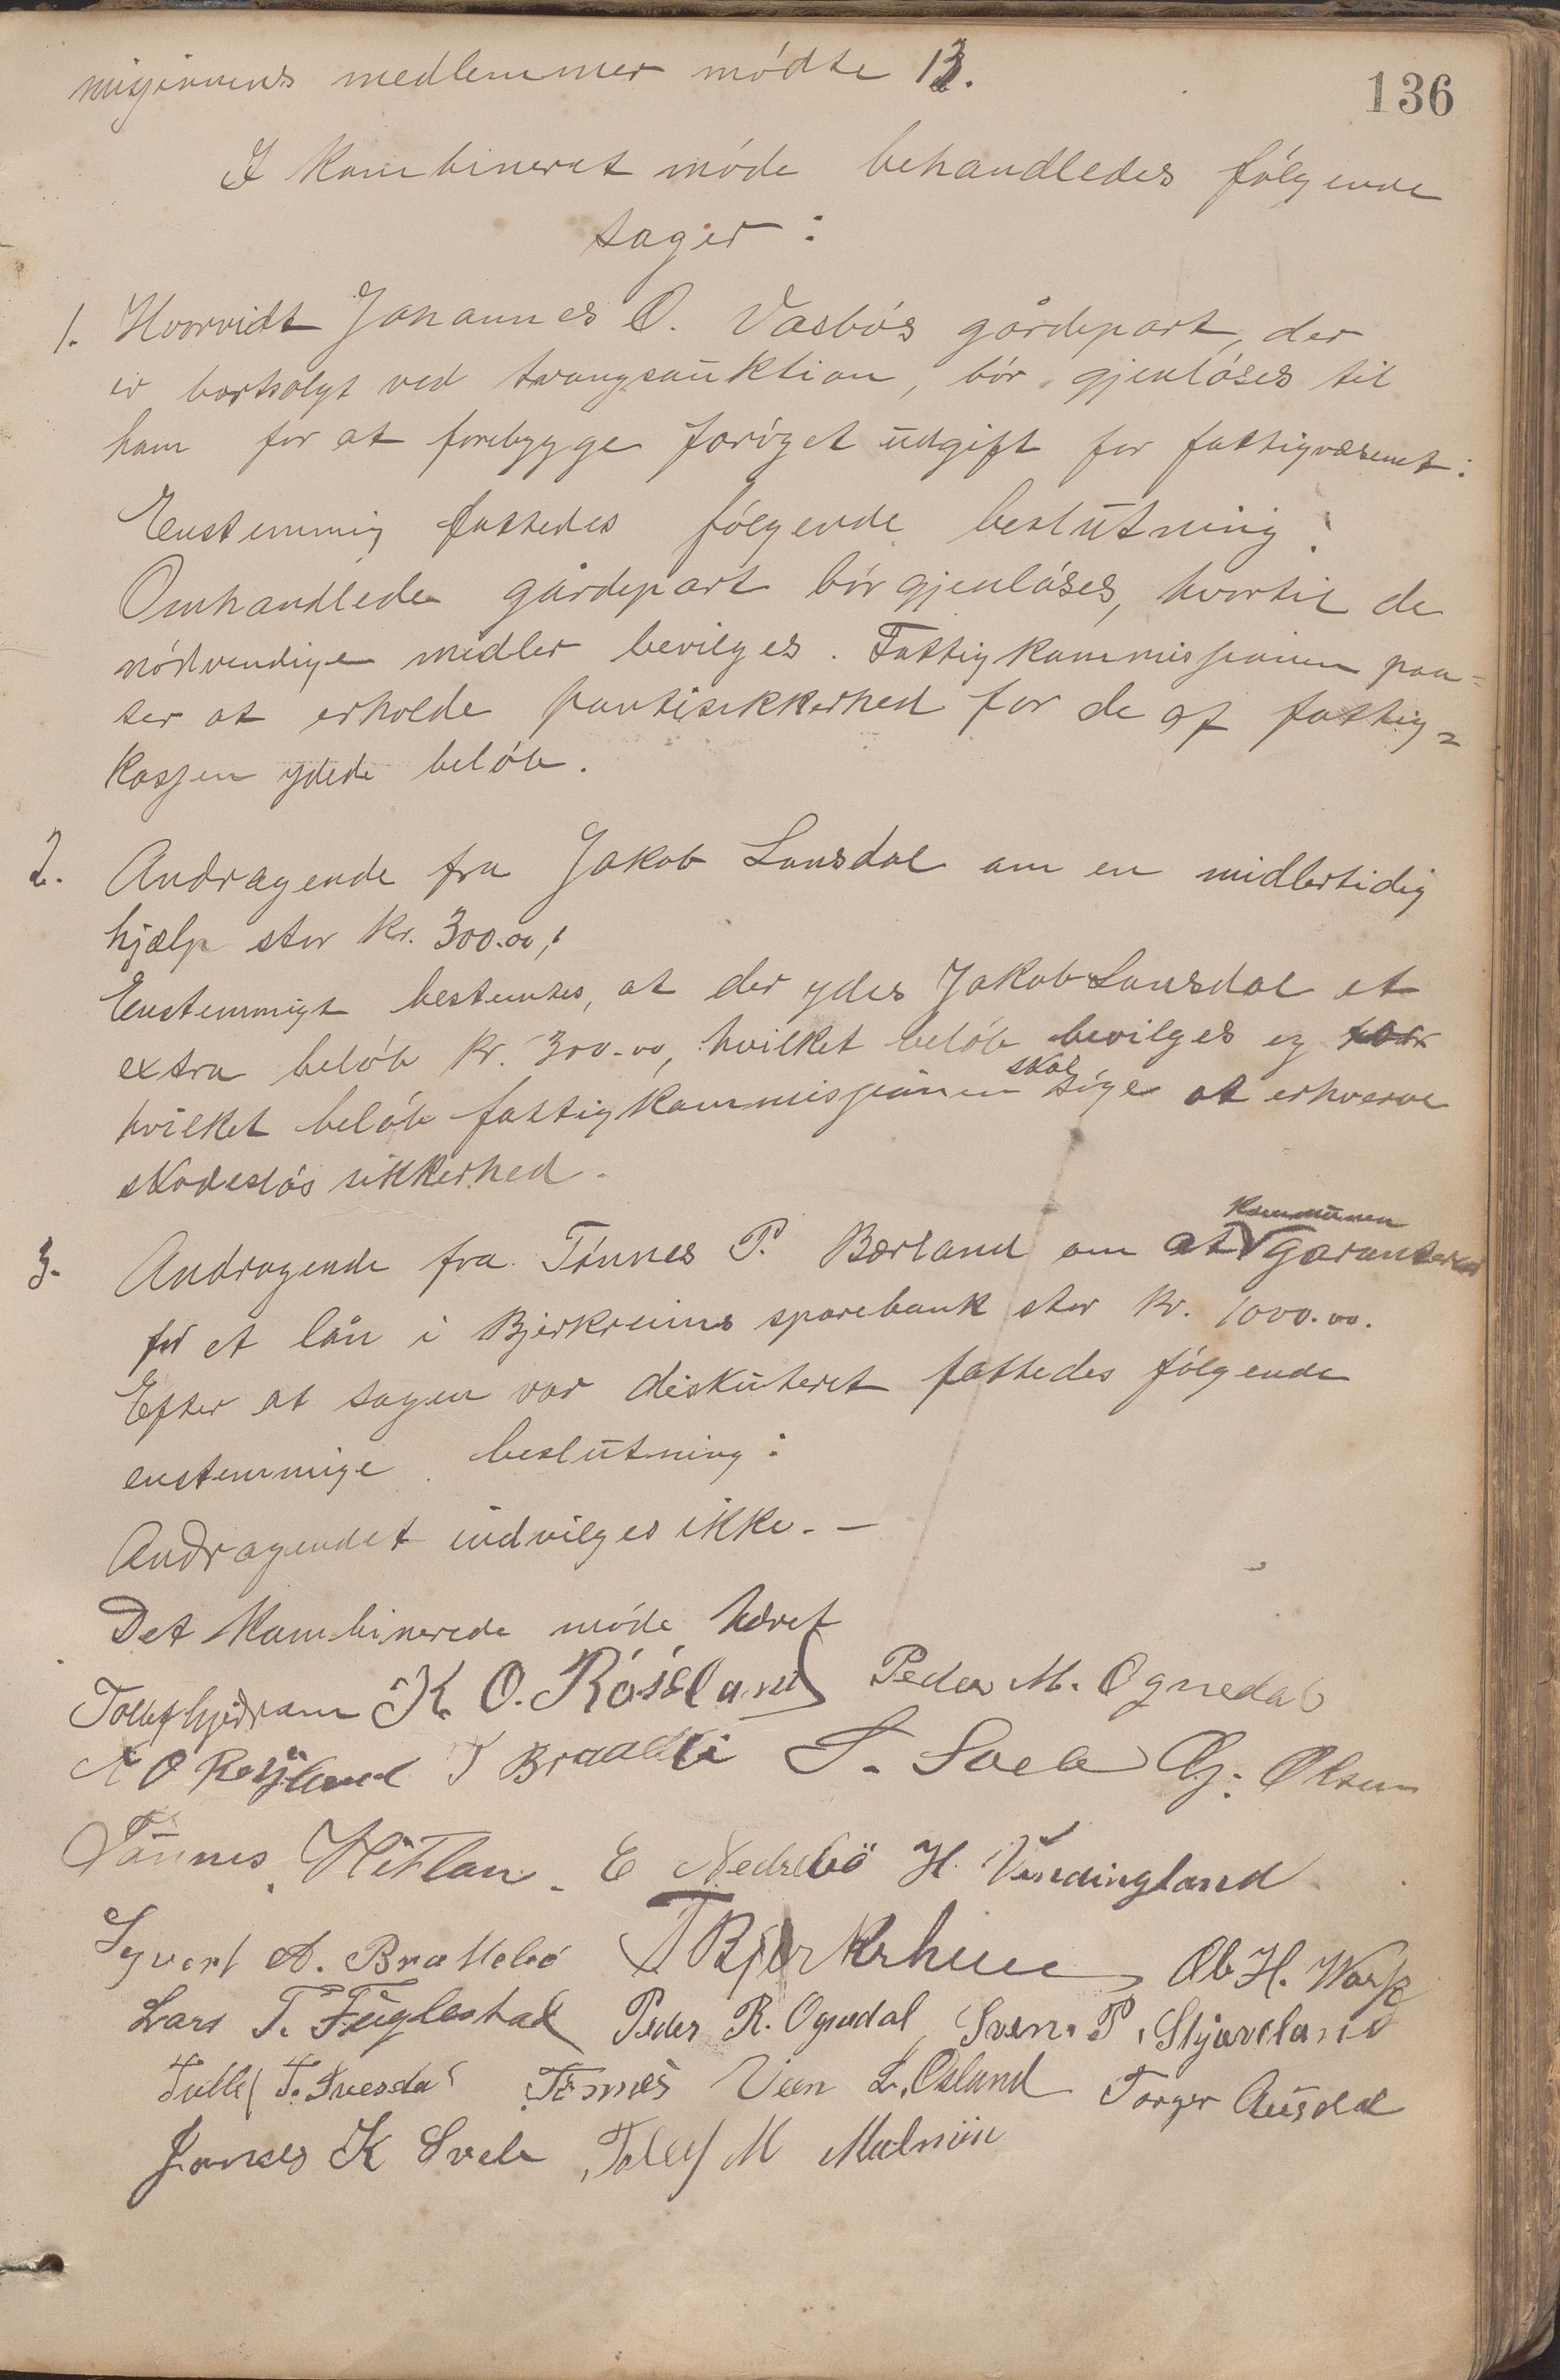 misjinens medlemmer mødte 13.
136
I kombineret møde behandledes følgende
sager:
1. Hvorvidt Johannes O. Vasbøs gårdepart, der
er bortsolgt ved tvangsauktion, bør gjenløses til
ham for at forebygge forøget udgift for fattigvæsenet:
Enstemmig fattedes følgende beslutning:
Omhandlede gårdepart bør gjenløses, hvortil de
nødvendige midler bevilges. Fattigkommissionen paa-
ser at erholde pantesikkerhed for de af fattig-
kassen ydede beløb.
2. Andragende fra Jakob Lunsdal om en midlertidig
hjælp stor Kr. 300.00,:
Enstemmigt bestemtes, at der ydes Jakob Lunsdal et
extra beløb Kr. 300.00, hvilket beløb bevilges og for
skal
hvilket beløb fattigkommissionen søge at erhverve
skadesløs sikkerhed.
kommunen
3. Andragende fra Tønnes P. Børland om at garanterer
for et lån i Bjerkreims sparebank stor Kr. 1000.00.
Efter at sagen var diskuteret fattedes følgende
enstemmige beslutning:
Andragendet indvilges ikke. —
Det kombinerede møde hævet
Tollef Gjedrem K. O. Røsland Peder M. Ognedal
A O Røysland T Braadli S. Svela G. Olsen
Tønnes Hetlan. E Nedrebø H. Vindingland
Syvert A. Brattebø T Bjerkrheim Ol H.
Lars T. Fuglestad Peder R. Ognedal Sven. P. Skjæveland
Tollef T. Tønnes Veen L. Osland Torger Ausdal
Jonas K Svela Tollef M Malmin